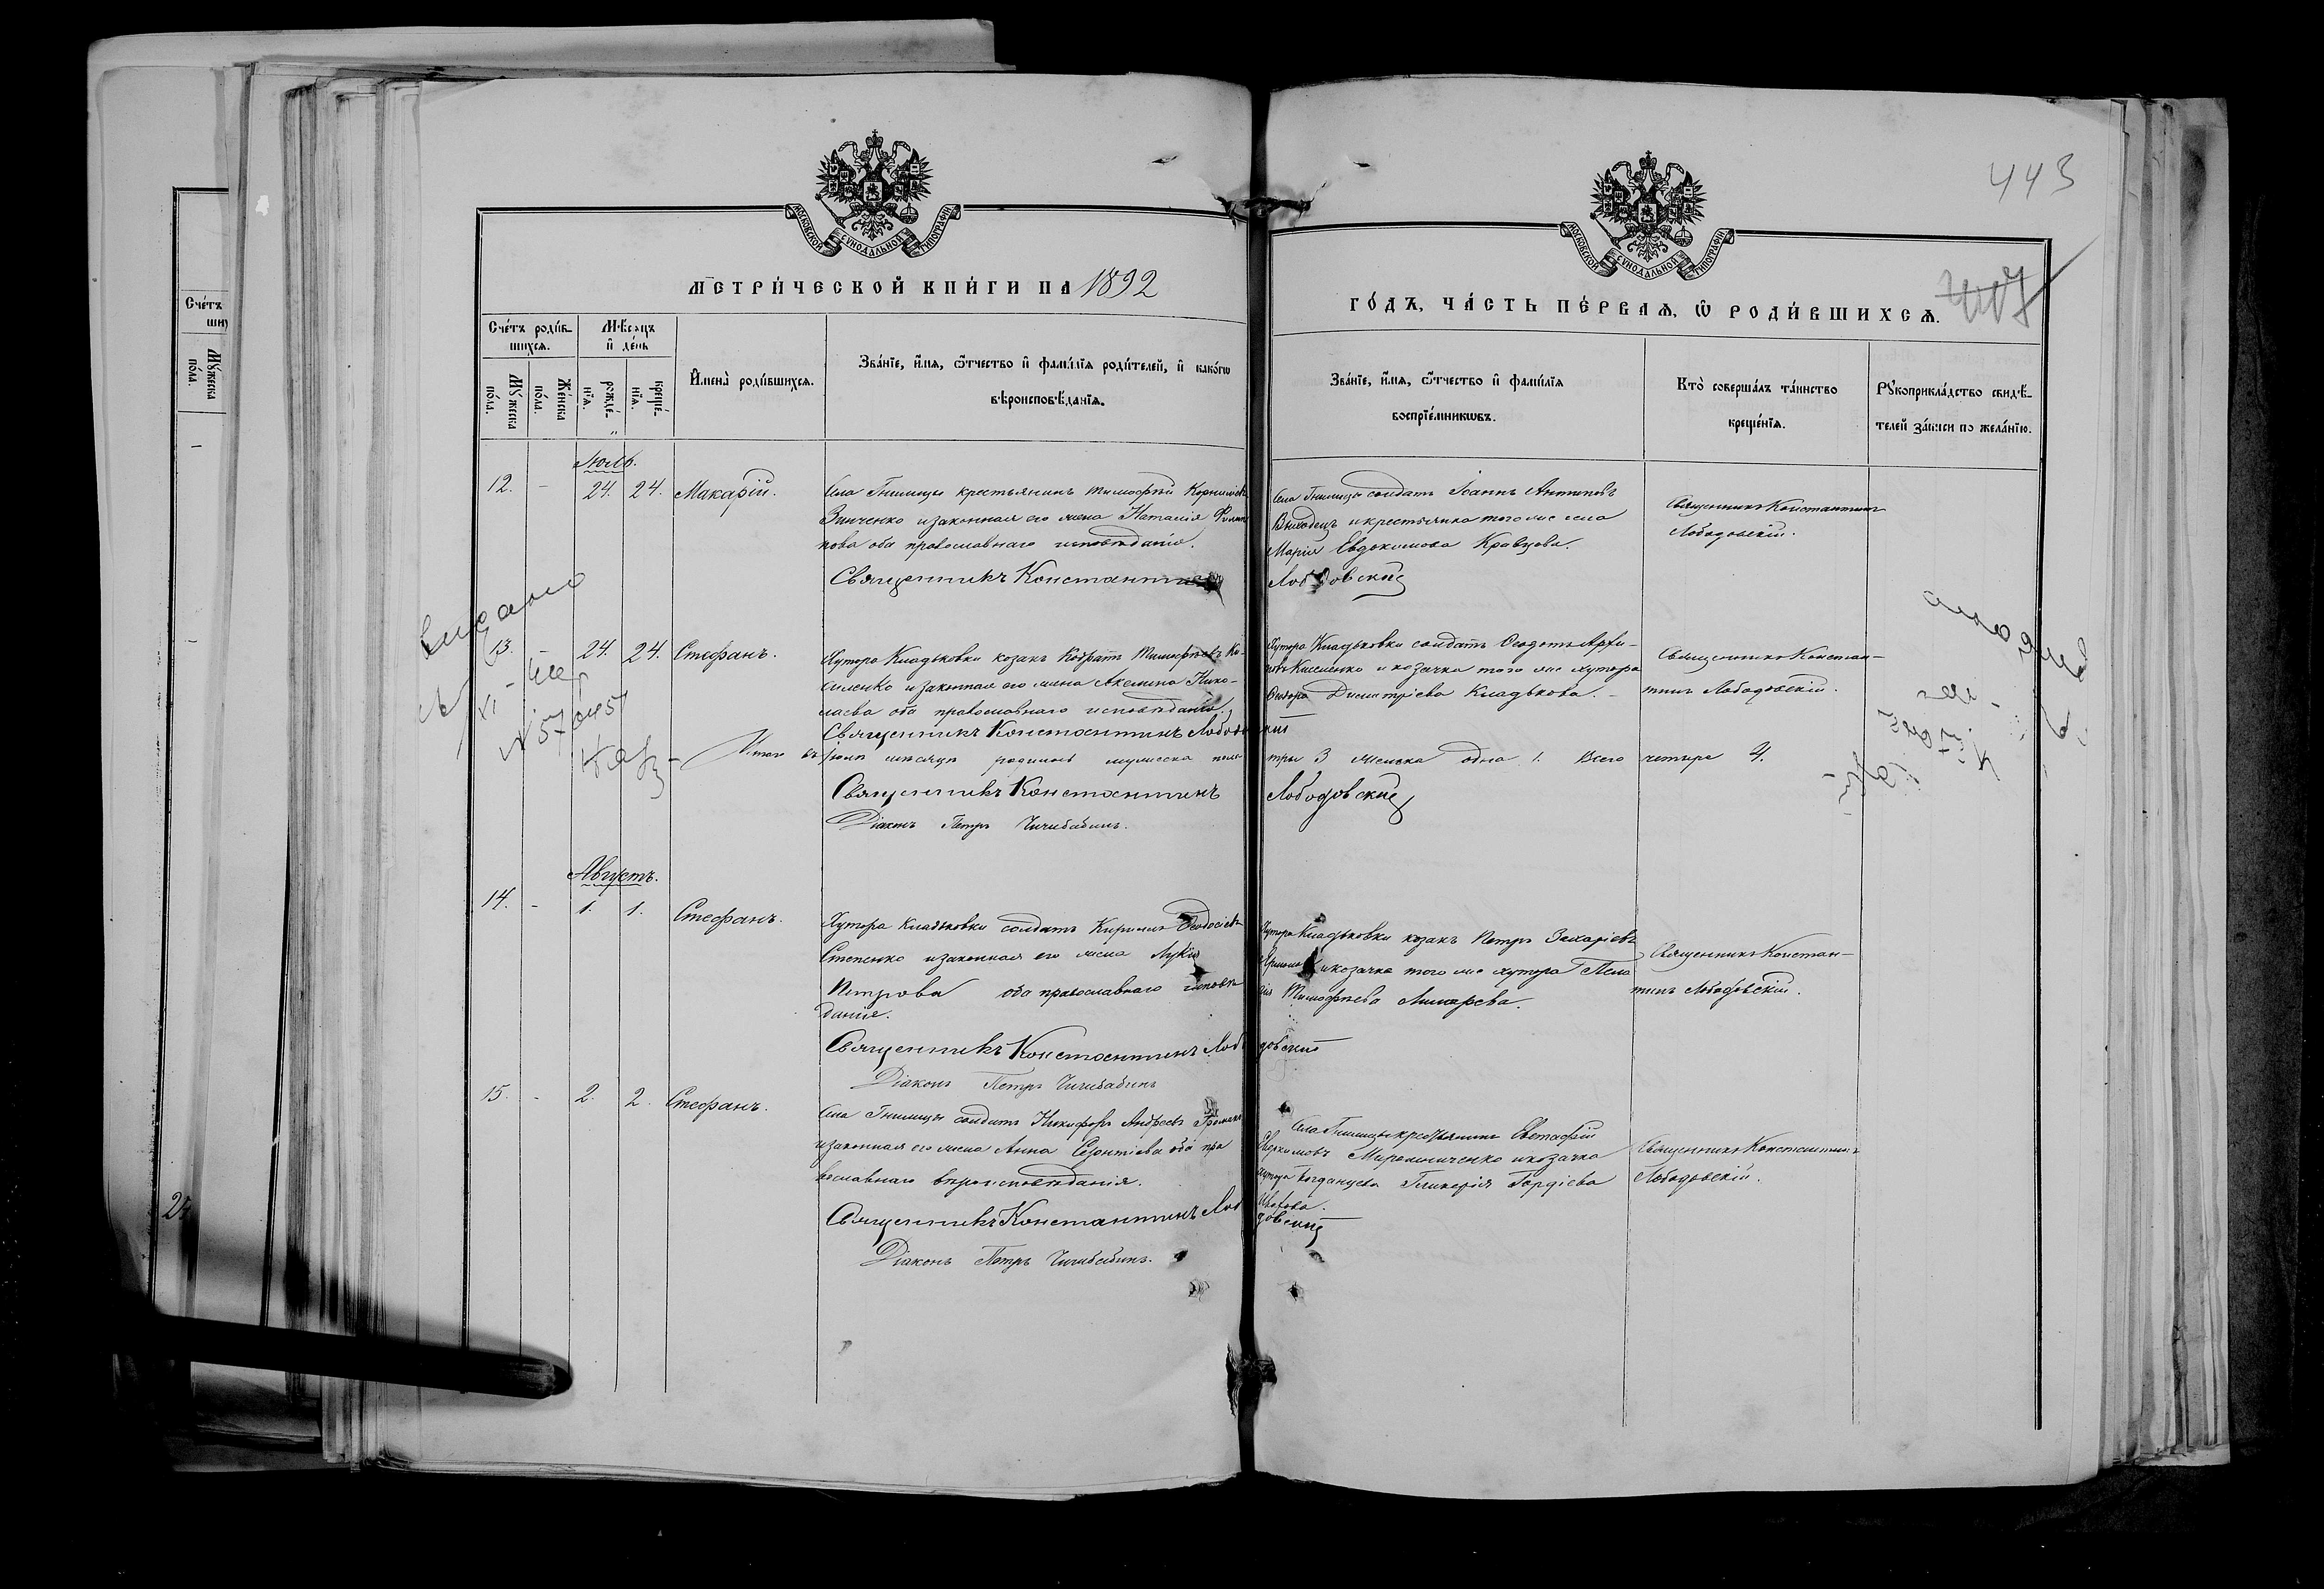 443
МОСКОВСКОЙ СѴНОДАЛЬНОЙ ТИПОГРАФІИ
МОСКОВСКОЙ СѴНОДАЛЬНОЙ ТИПОГРАФІИ
МЕТРИ́ЧЕСКОЙ КНИ́ГИ НА 1892
ГО́ДЪ, ЧА́СТЬ ПЕ́РВАѦ, Ѡ РОДИ́ВШИХСѦ.
Сче́тъ роди́в-
шихсѧ.
Мѣсѧцъ
и де́нь
Му́жеска
по́ла.
Же́нска
по́ла.
рожде́-
нїѧ.
креще́-
нїѧ.
Имена̀ роди́вшихсѧ.
Зва́нїе, и́мѧ, ѻ́тчество и фами́лїѧ роди́телей, и како́гѡ
вѣроисповѣ́данїѧ.
Зва́нїе, и́мѧ, ѻ́тчество и фами́лїѧ
воспрїе́мникѡвъ.
Кто̀ соверша́лъ та́инство
креще́нїѧ.
Рꙋкоприкла́дство свидѣ́-
телей за́писи по жела́нїю.
Сче́тъ
Мꙋ́жеска
по́ла.
Іюль.
12. - 24. 24. Макарій.
Села Гнилицы крестьянинъ Тимофей Корнилiевъ
Зинченко и законная его жена Наталія Филип
пова оба православнаго исповѣданія.
Священникъ Константинъ
Села Гнилицы солдатъ Іоаннъ Антиповъ
Выходецъ и крестьянка того же села
Марія Евдокимова Кравцова.
Лободовскій
Священникъ Константинъ
Лободовскій.
13. 24. 24. Стефанъ.
Хутора Кладьковки козакъ Тимофеевъ Ки-
силенко и законная его жена Акелина Нико-
лаева оба православнаго исповѣданія.
Священникъ Константинъ Лободовскій
Хутора Кладьковки солдатъ Ѳеодотъ Архи-
повъ Кисиленко и козачка того же хутора
Димитріева Кладькова. -
Священникъ Констан-
тинъ Лободовскій.
Итого въ іюлѣ мѣсяцѣ родилось мужеска пола три 3 женска одна 1. Всего четыре 4.
Священникъ Константинъ Лободовскій
Діаконъ Петръ Чичибабинъ.
Августъ.
14. - 1. 1. Стефанъ.
Хутора Кладьковки солдатъ Кириллъ Ѳеодосіевъ
Степенко и законная его жена Лукія
Петрова оба православнаго исповѣ
данія.
Священникъ Константинъ Лободовскій
Діаконъ Петръ Чичибабинъ
Хутора Кладьковки козакъ Петръ Захаріевъ
и козачка того же хутора Пела
гія Тимофеева
Священникъ Констан-
тинъ Лободовскій.
15. - 2. 2. Стефанъ.
Села Гнилицы солдатъ Никифоръ Андреевъ
и законная его жена Анна Леонтіева оба пра
вославнаго вѣроисповѣданія.
Священникъ Константинъ Лободовскій
Діаконъ Петръ Чичибабинъ.
Села Гнилицы крестьянинъ Евстафій
Евдокимовъ Мирошниченко и козачка
хутора Богданцева Гликерія Гордіева
Священникъ Константинъ
Лободовскій.